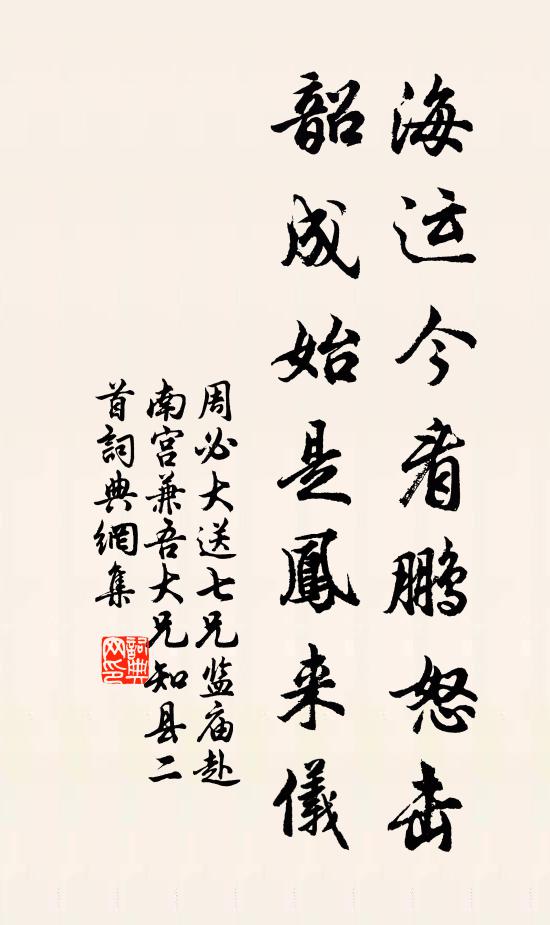 海运今看鹏怒击
韶成始是鳳来儀
周必大送七兄监庙赴
南宫兼吾大兄知县二
首詞典網集
詞典網印